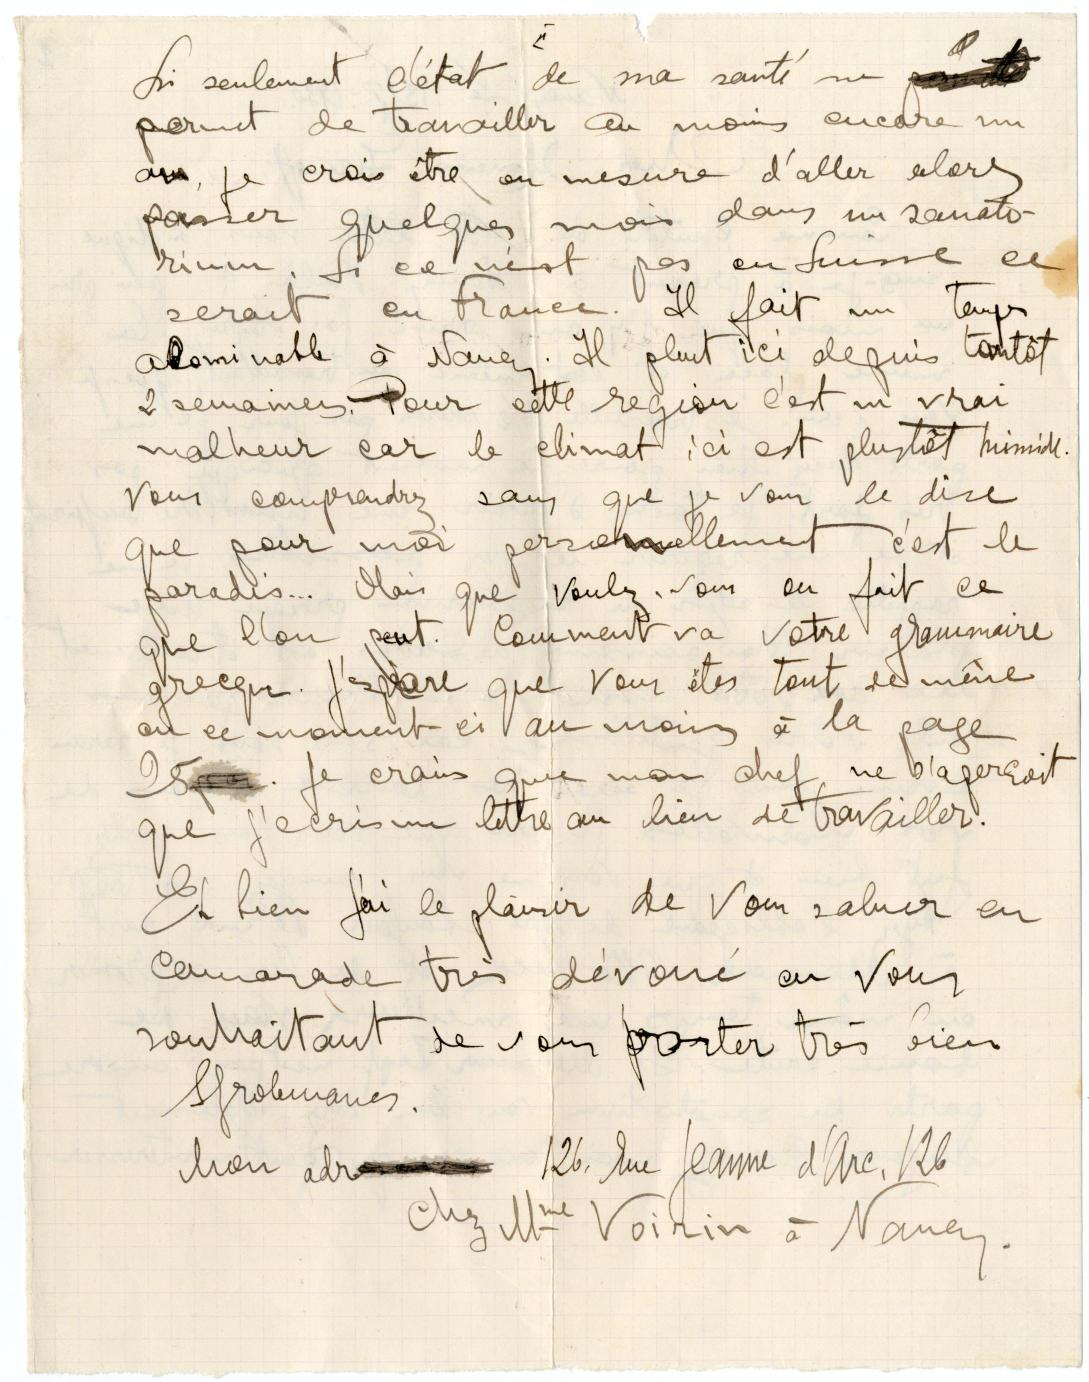 Si seulement l'état de ma santé me
permet de travailler au moins encore un
an, je crois être en mesure d'aller alors
passer quelques mois dans un sanato-
rium. Si ce n'est pas en Suisse ce
serait en France. Il fait un temps
abominable à Nancy. Il pleut ici depuis tantôt
2 semaines. Pour cette region c'est un vrai
malheur car le climat ici est plustôt humide.
Vous comprendrez sans que je vous le dise
que pour moi personnellement c'est le
paradis... Mais que voulez-vous on fait ce
que l'on peut. Comment va votre grammaire
grecque. J'espère que vous êtes tout de même
en ce moment-ci au moins à la page
25. Je crains que mon chef ne s'aperçoit
que j'ecris une lettre au lieu de travailler.
Eh bien j'ai le plaisir de vous saluer en
camarade très dévoué en vous
souhaitant de vous porter très bien
Mon adr 126, Rue Jeanne d'Arc, 126
Chez Mme Voirin à Nancy.